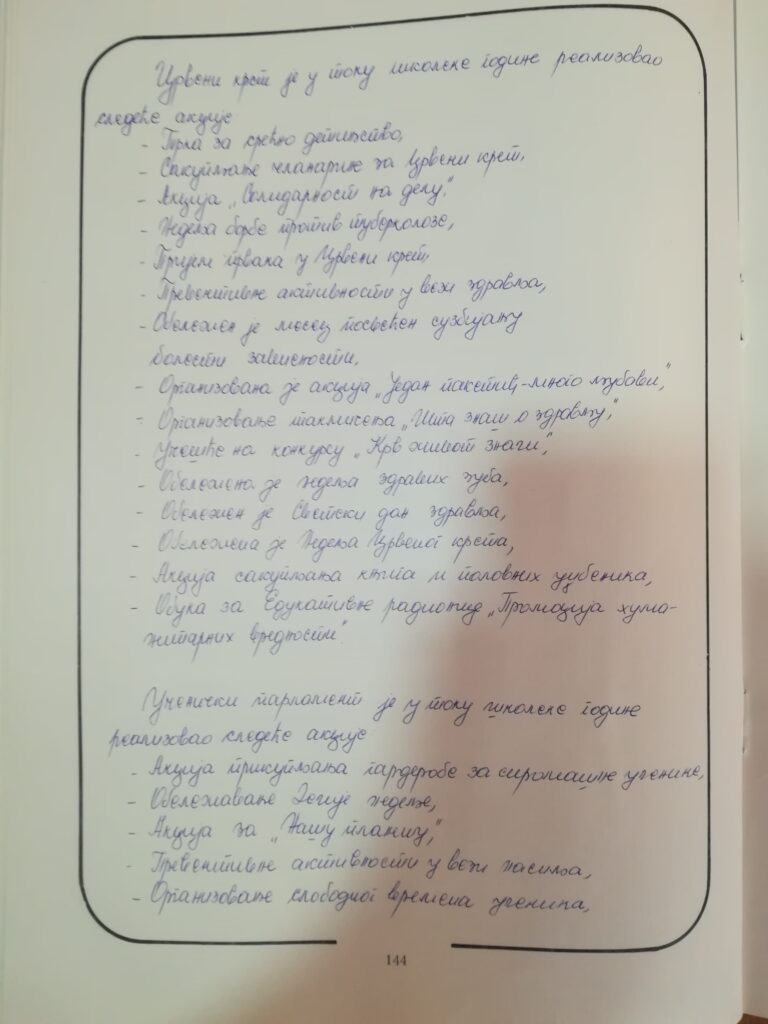 Црвени крст је у току школске године реализовао
следеће акције
- Трка за срећно детињство,
- Сакупљање чланарине за Црвени крст,
- Акција „Солидарност на делу,"
- Недеља борбе против туберколозе,
- Пријем првака у Црвени крст,
- Превентивне активности у вези здравља,
- Обележен је месец посвећен сузбијању
болести зависности,
- Организована је акција „Један пакетић-много љубави",
- Организовање такмичења „Шта знаш о здрављу",
- Учешће на конкурсу „Крв живот значи",
- Обележена је недеља здравих зуба,
- Обележен је Светски дан здравља,
- Обележена је Недеља Црвеног крста,
- Акција сакупљања књига и половних уџбеника,
- Обука за Едукативне радионице „Промоција хума-
нитарних вредности".
Ученички парламент је у току школске године
реализовао следеће акције
- Акција прикупљања гардеробе за сиромашне ученике,
- Обележавање Дечије недеље,
- Акција за „Нашу планету,"
- Превентивне активности у вези насиља,
- Организовање слободног времена ученика,
144